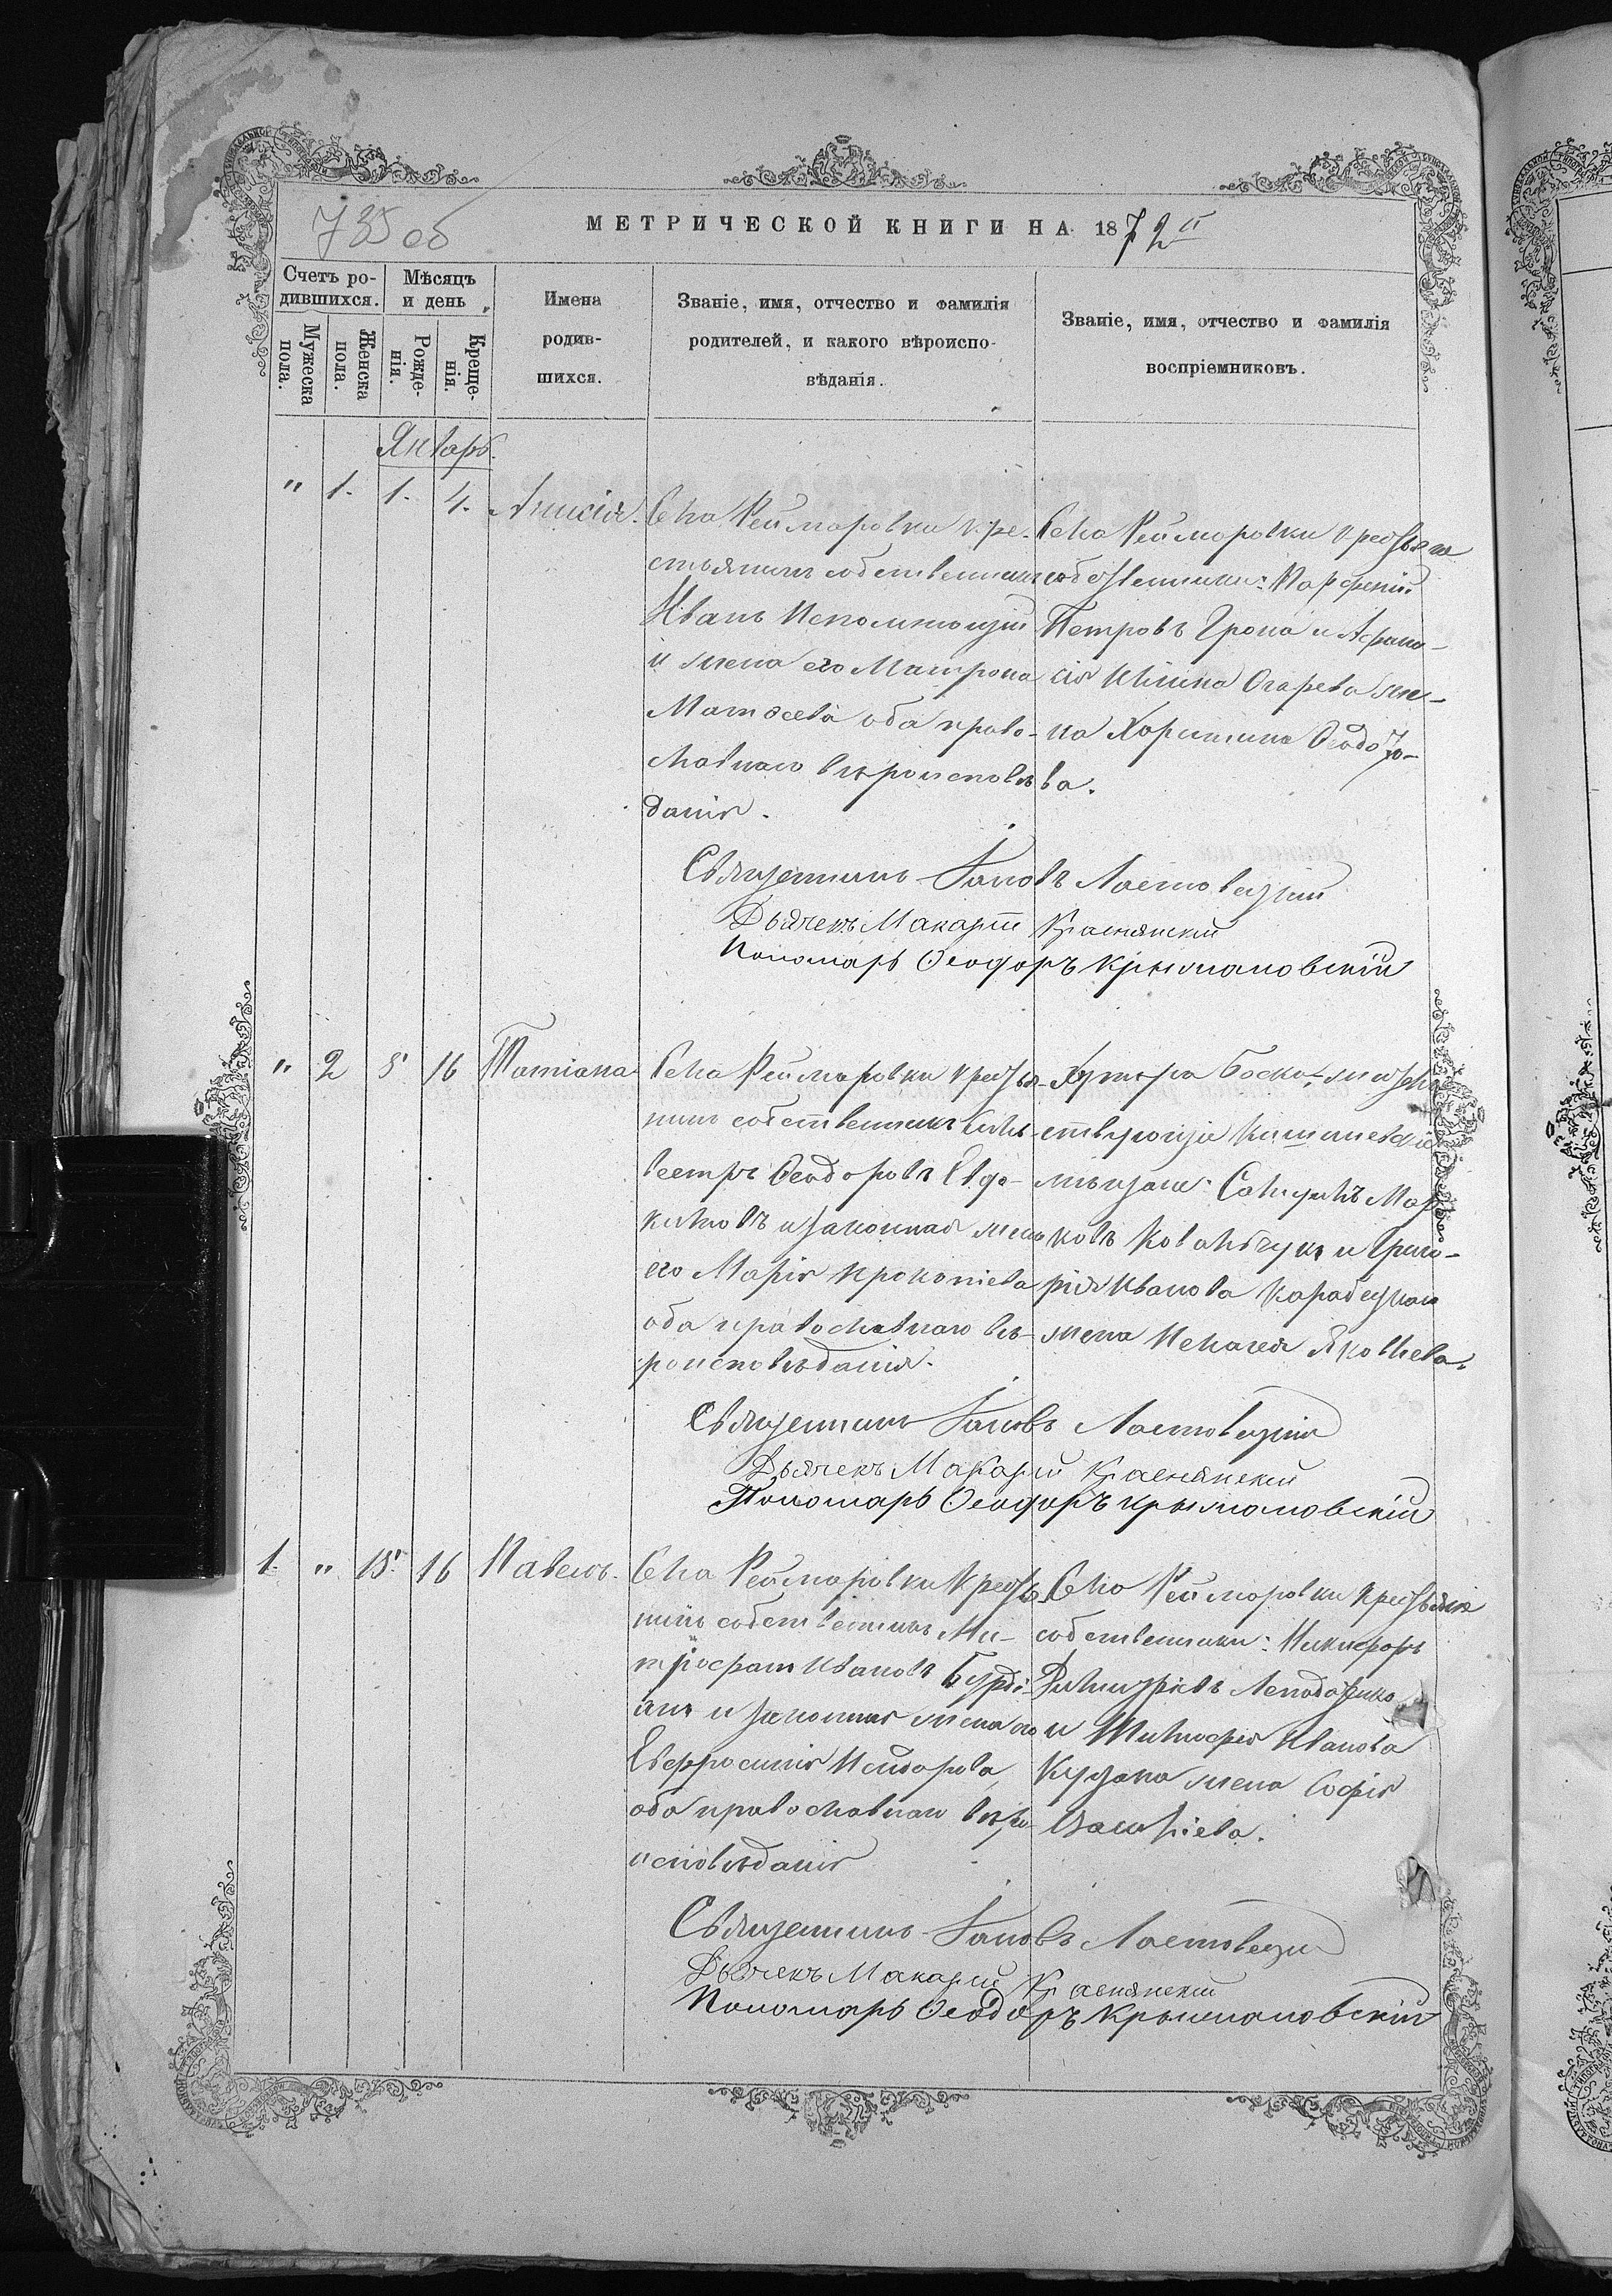 735 об
МЕТРИЧЕСКОЙ КНИГИ НА 1872й
Счетъ ро-
дившихся.
Мѣсяцъ
и день
Мужеска
пола.
Женска
пола.
Рожде-
нія.
Креще-
нія.
Имена
родив-
шихся.
Званіе, имя, отчество и фамилія
родителей, и какого вѣроиспо-
вѣданія.
Званіе, имя, отчество и фамилія
воспріемниковъ.
Январь.
" 1. 1. 4. Анисія.
Села Реймаровки кре-
стьянинъ собственникъ
Иванъ Непомнющій
и жена его Матрона
Матѳеева оба право-
славнаго вѣроисповѣ
данія.
Села Рейморовки крестьяне
собственники: Парфеній
Петровъ Грона и Афана-
сія Огарева же-
на Харитина Ѳеодото-
ва.
Священникъ Іаковъ Ластовецкій
Дьячекъ Макарій Краснянскій
Пономарь Ѳеодоръ Крыжановскій
" 2 8 16 Татіана
Села Реймаровки крестья-
нинъ собственникъ Силь-
вестръ Ѳеодоровъ Евдо-
кимовъ и законная жена
его Марія Прокопіева
оба православнаго вѣ-
роисповѣданія.
Хутора жительствующіе
мѣщане: Самуилъ Мар-
ковъ Ковальчукъ и Григо-
рія Иванова
жена Пелагея Яковлева.
Священникъ Іаковъ Ластовецкій
Дьячекъ Макарій Краснянскій
Пономарь Ѳеодоръ Крыжановскій
1. " 15. 16 Павелъ.
Села Реймаровки крестья
нинъ собственникъ Ми-
трофанъ Ивановъ
и законная жена его
Евфросинія Исидорова,
оба православнаго вѣро-
исповѣданія
Села Рейморовки крестьяне
собственники: Никифоръ
Димитріевъ
и Тимофея Иванова
жена Софія
Священникъ Іаковъ Ластовецкій
Дьячекъ Макарій Краснянскій
Пономарь Ѳеодоръ Крыжановскій